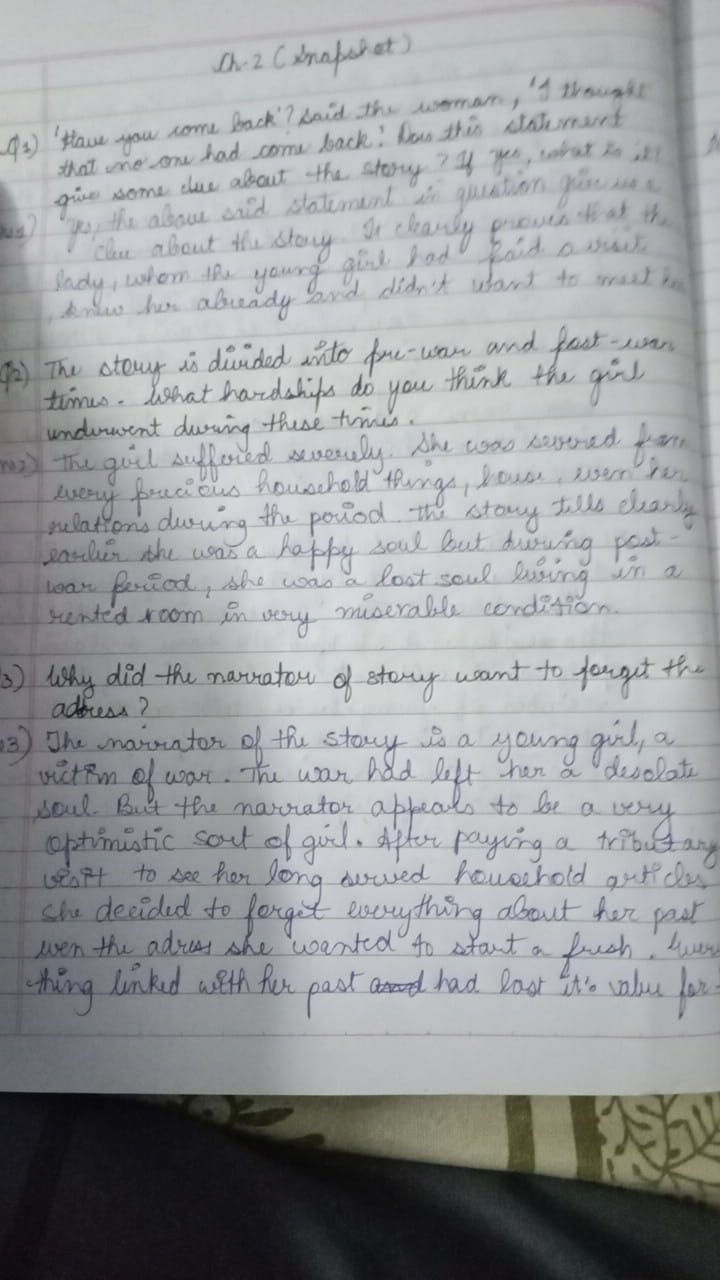 Ch-2 (Snapshot)
Q1) 'Have you come back'? said the woman, 'I thought
that no one had come back! Does this statement
give some clue about the story? If yes, what is it?
Yes, the above said statement in question gives us a
clue about the story. It clearly proves that the
lady, whom the young girl had paid a visit
, knew her already and didn't want to meet her
Q2) The story is divided into pre-war and post-war
times. What hardships do you think the girl
underwent during these times.
The girl suffered severely. She was severed from
every precious household things, house, even her
relations during the period. The story tells clearly
earlier she was a happy soul but during post-
war period, she was a lost soul living in a
rented room in very miserable condition.
3) Why did the narrator of story want to forget the
address?
3) The narrator of the story is a young girl, a
victim of war. The war had left her a desolate
soul. But the narrator appears to be a very
optimistic sort of girl. After paying a tributary
visit to see her long served household articles
she decided to forget everything about her past
even the adress she wanted to start a fresh. Every
thing linked with her past and had lost it's value for